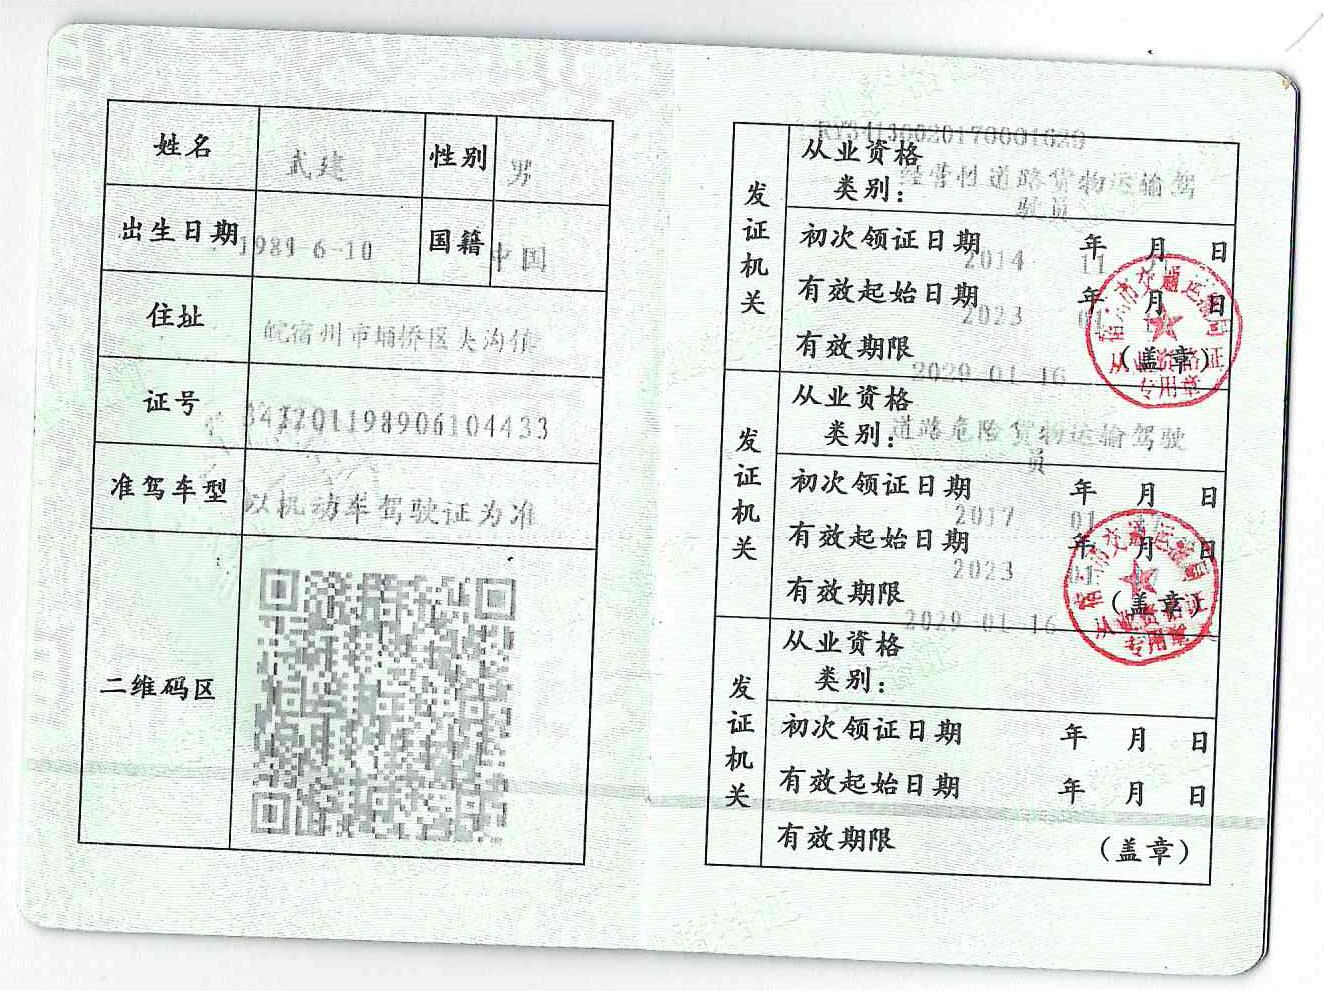 姓名 武建 性别 男
出生日期 1989-6-10 国籍 中国
住址 皖宿州市埇桥区大沟
证号 342201198906104433
准驾车型 以机动车驾驶证为准
二维码区
发证机关
从业资格
类别: 经营性道路货物运输驾
驶员
初次领证日期 2014年11月 日
有效起始日期 2023年01月 日
有效期限 2029-01-16
(盖章)
宿州市交通运输局
从业资格证
专用章
发证机关
从业资格
类别: 道路危险货物运输驾驶
员
初次领证日期 2017年01月 日
有效起始日期 2023年01月17日
有效期限 2029-01-16
(盖章)
宿州市交通运输局
从业资格证
专用章
发证机关
从业资格
类别:
初次领证日期 年 月 日
有效起始日期 年 月 日
有效期限 (盖章)